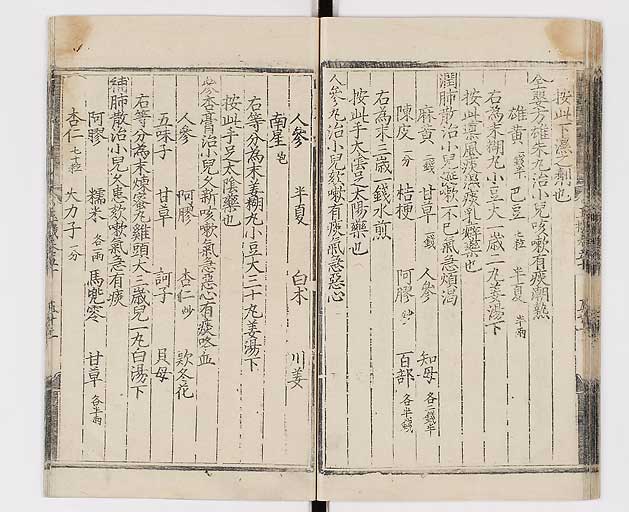 按此下涎之劑也
全嬰方雄朱丸治小兒咳嗽有痰潮熱
雄黃 巴豆 七粒 半夏 半兩
右為末糊丸小豆大一歲二丸姜湯下
潤肺散治小兒咳嗽不已氣急煩渴
麻黃 甘草 人參 知母 各二錢半
陳皮 一分 桔梗 阿膠 炒 百部 各半錢
右為末三歲一錢水煎
按此手太陰足太陽藥也
人參丸治小兒欬嗽有痰氣急惡心
人參 半夏 白朮 川姜
南星 炮
右等分為末姜糊丸小豆大三十丸姜湯下
按此手足太陰藥也
杏膏治小兒久新咳嗽氣急惡心有痰咯血
人參 阿膠 杏仁 炒 款冬花
五味子 甘草 訶子 貝母
右等分為末煉蜜丸雞頭大三歲兒一丸白湯下
補肺散治小兒久患欬嗽氣急有痰
阿膠 糯米 各一兩 馬兜零 甘草 各半兩
杏仁 七十粒 大力子 一分